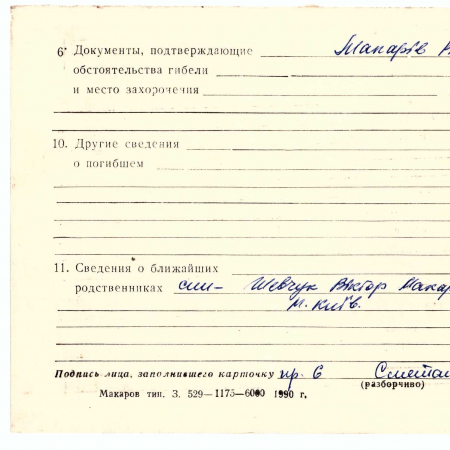 6 Документы, подтверждающие Макарів
обстоятельства гибели
и место захоронения
10. Другие сведения
о погибшем
11. Сведения о ближайших
родственниках син - Шевчук Віктор Макар
м. Київ.
Подпись лица, заполнившего карточку пр. 6 Сметан
(разборчиво)
Макаров тип. З. 529—1175—6000 1990 г,